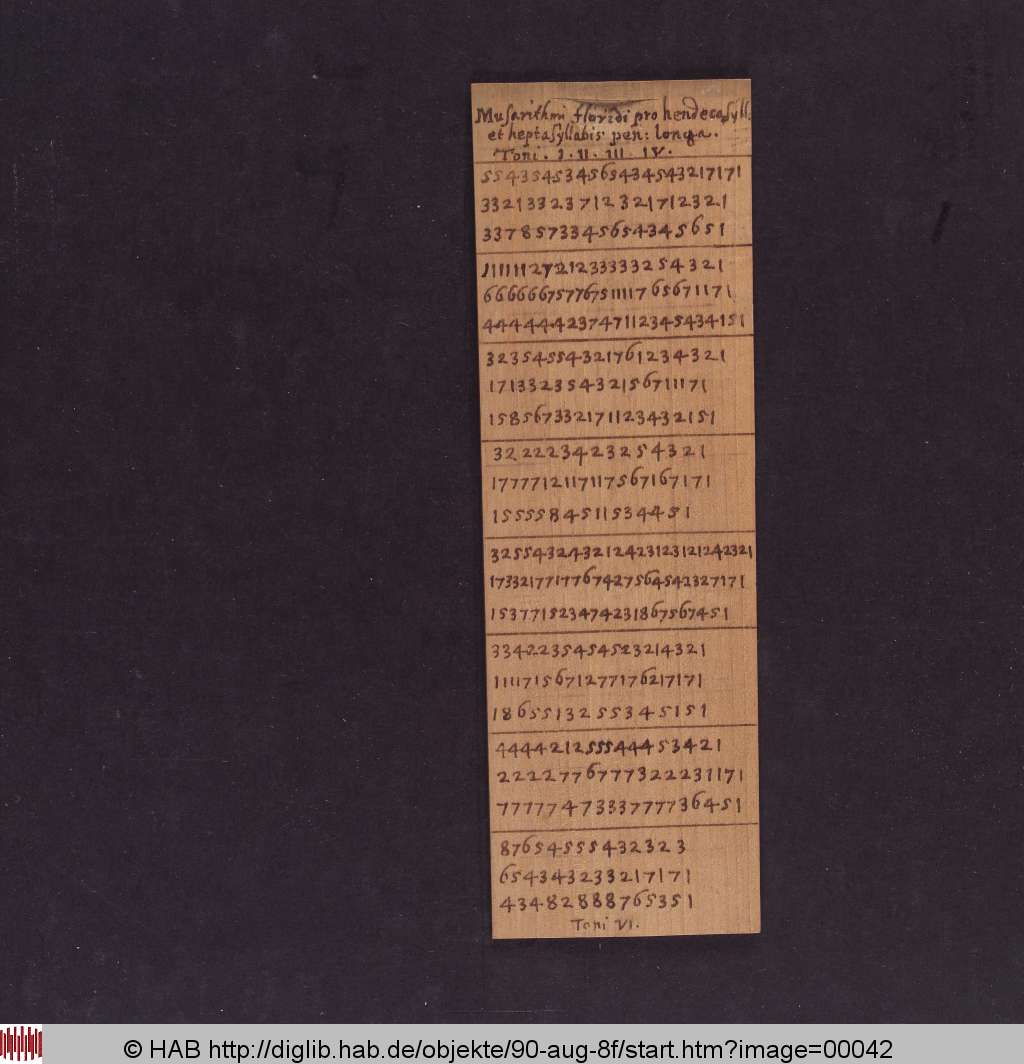 Musarithmi floridi pro hendecasyll.
et heptasyllabis pen: longa.
Toni. I. II. III. IV.
554354534565434543217171
33213323712321712321
3378573345654345651
111111272123333325 4321
66666757767511117656711171
44444423747112345434151
32354554321761234321
171332354321567111171
1585673321711234321 51
3222234232 54321
177771211711756716717 1
1555584511534451
3255432432124231231212 42321
1733217717767427564542327171
1537715234742318675674 51
3342235454523214321
1111715671277176217171
1865513255345151
4444212555444 53421
2222776777322231171
7777747333777736451
876545554323 23
654343233217171
434828887653 51
Toni VI.
© HAB http://diglib.hab.de/objekte/90-aug-8f/start.htm?image=00042